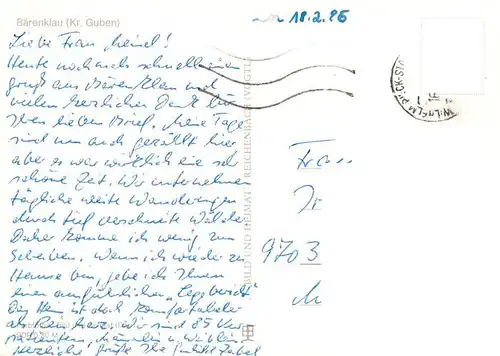 Bärenklau (Kr. Guben)
18.2.86
Liebe Frau
Heute noch schnell einen
gruß aus Bärenklau mit
vielem herzlichen Dank für
Ihren lieben Brief. Meine Tage
sind nun auch gezählt hier
aber es war wirklich eine sehr
schöne Zeit. Wir unternehmen
tägliche weite Wanderungen
durch tief verschneite Wälder
Daher komme ich wenig zum
Schreiben. Wenn ich wieder zu
Hause bin, gebe ich Ihnen
einen ausführlichen
ist doch komfortabler
Wir sind 85 Kur
patienten, männlein u. Weiblein
Herzliche Grüße Ihr
BILD UND HEIMAT REICHENBACH (VOGTL)
WILHELM-PIECK-STADT
Frau
9703